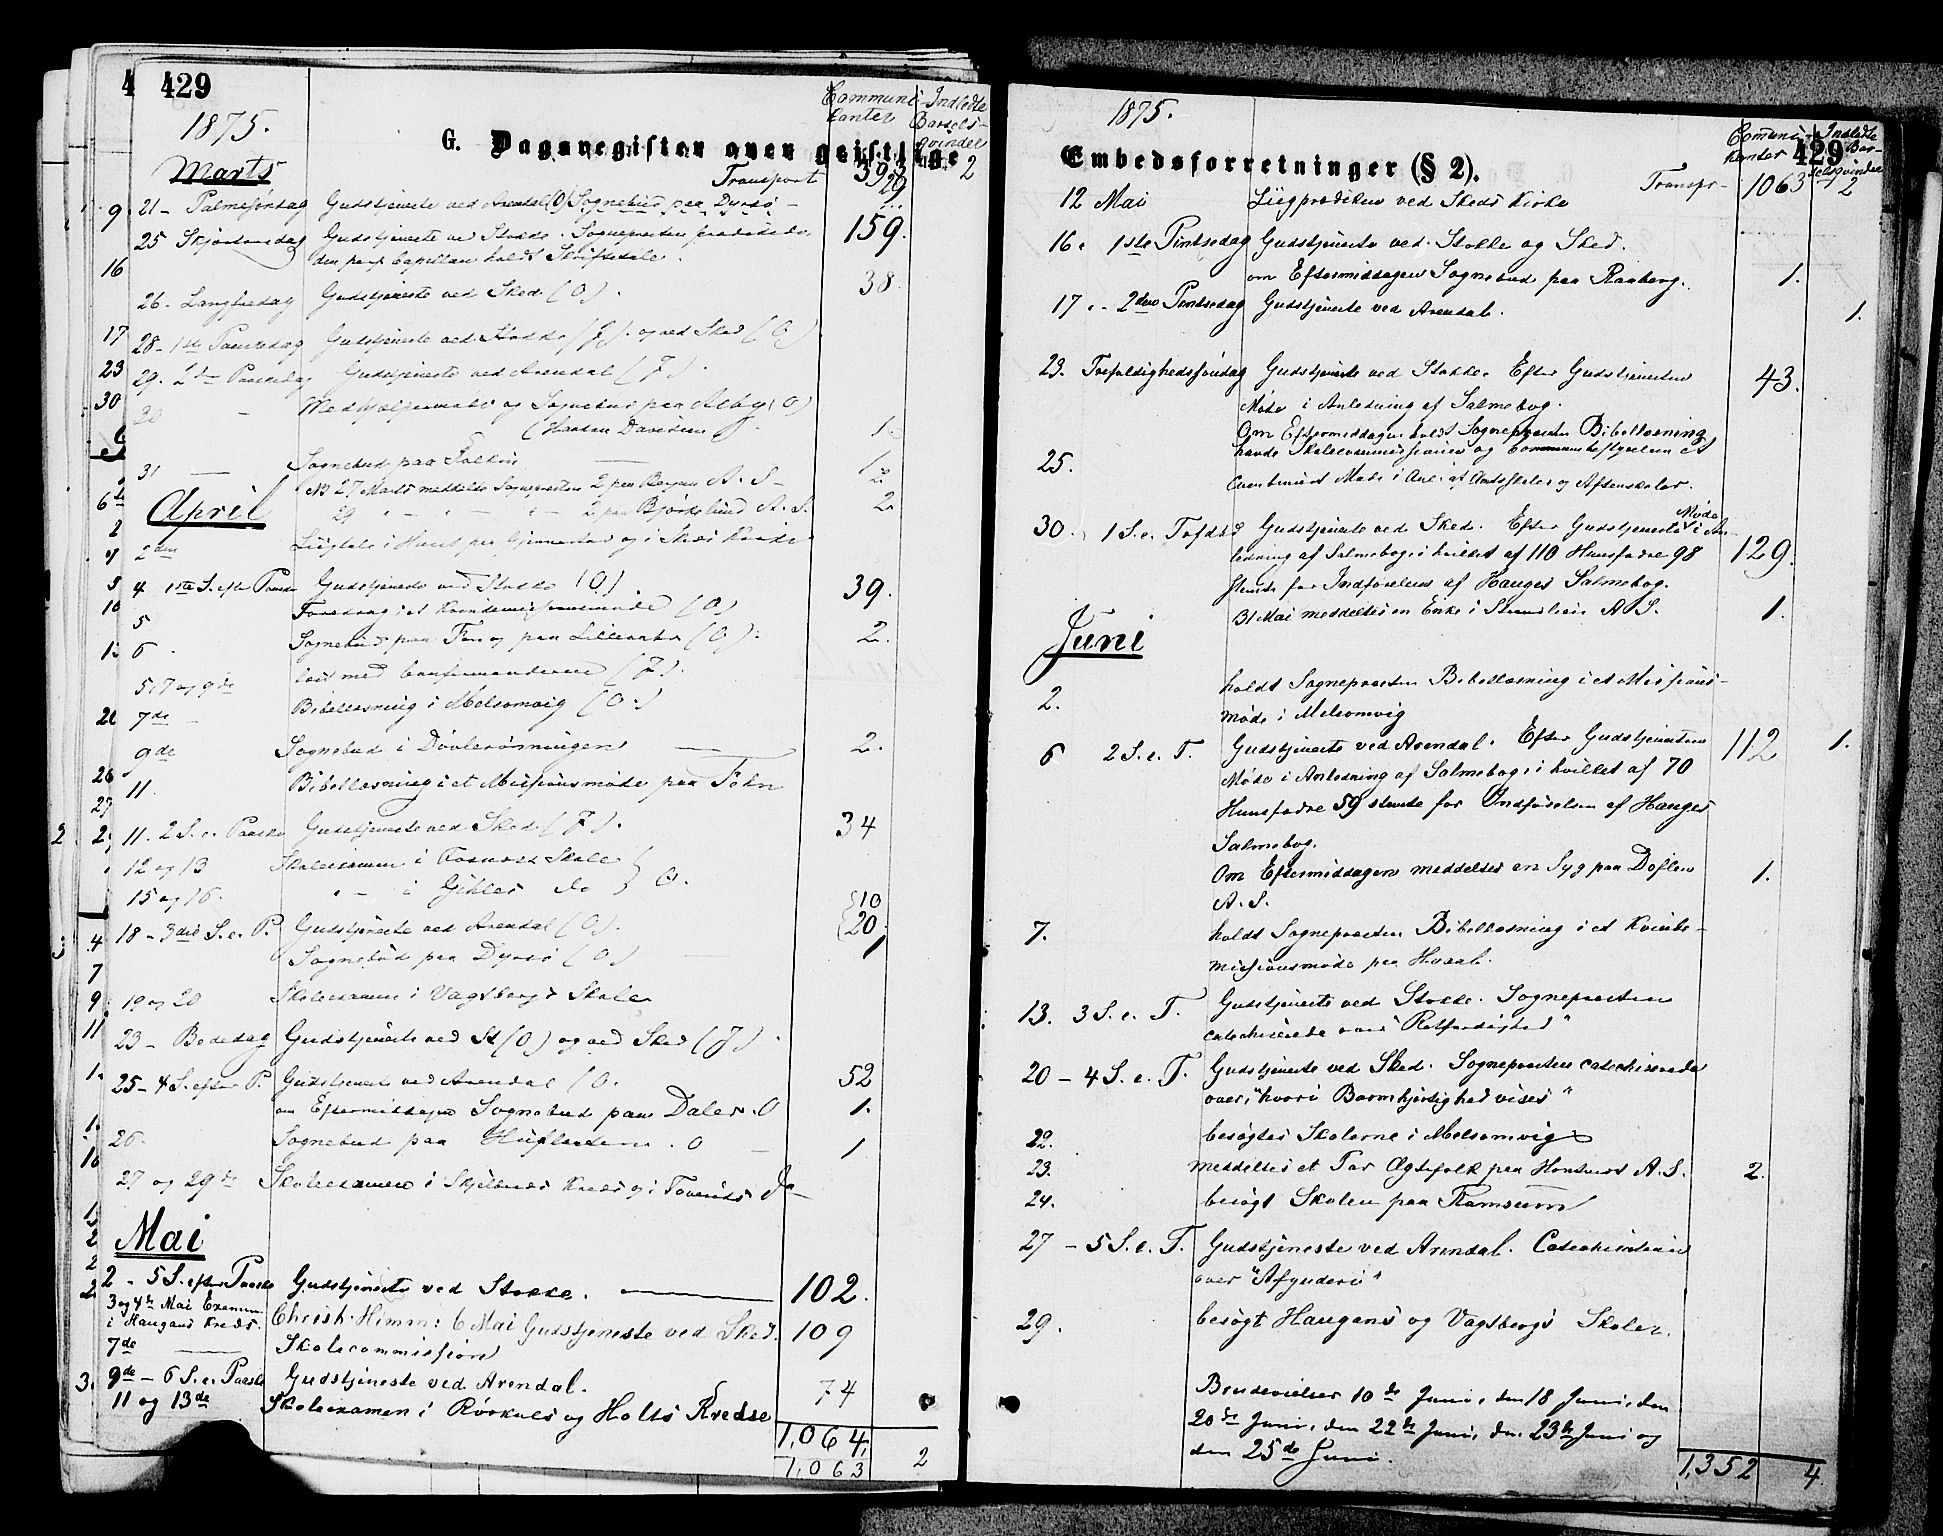 4 429
1875.
Communi-
canter
Indledte
Barsels-
qvinder
G. Dagsregister over geistlige
Marts
Transport 393 2
21 - Palmesöndag Gudstjeneste ved Arendal (O) Sognebud paa Dyrsö - 29
25 Skjærtorsdag Gudstjeneste ved Stokke. Sognepresten prædikede, 159.
den pers. Capellan holdt Skriftetale.
26 - Langfredag Gudstjeneste ved Sked (O). 38.
28 - 1ste Paaskedag Gudstjeneste ved Stokke (J). og ved Sked (O)
29. 2den Paaskedag Gudstjeneste ved Arendal (J).
30 - og Sognebud paa (O)
J. 1.
31 Sognebud paa 1.
NB 27 Marts meddelte Sognepresten 2 paa Bergan A. S. 2
April
29 " - " - " - 2 paa Bjørkelund A. S. 2.
2den Liigtale i Huset paa og i Kirke
4 1ste S. eft. Paaske Gudstjeneste ved Stokke (O) 39.
5 Foredrag i et Kvindemissionsmöde (O)
6. Sognebud paa og paa (O). 2.
5, 7 og 9de læst med Confirmanderne (J).
7de - Bibellæsning i Melsomvig (O.)
9de Sognebud i Dövlerösningen 2.
11. Bibellæsning i et Missionsmöde paa
11. 2 S. e. Paaske Gudstjeneste ved Sked (J). 34
12 og 13 Skoleexamen i Skole
15 og 16. " - i Gihler do } O.
10
18 - 3die S. e. P. Gudstjeneste ved Arendal (O). 20.
Sognebud paa Dyrsö (O) 1
19 og 20 Skoleexamen i Vagsbergs Skole
23 - Bededag Gudstjeneste ved St (O) og ved Sked (J).
25 - 4 S. efter P. Gudstjeneste ved Arendal (O. 52
om Eftermiddagen Sognebud paa Daler. O 1.
26. Sognebud paa . O 1
27 og 29de Skoleexamen i Kreds og i
Mai
2 - 5 S. efter Paaske Gudstjeneste ved Stokke. 102.
3 og 4de Mai Examen
i Haugans Kreds. Christi Himm: 6 Mai Gudstjeneste ved Sked. 109
7de Skolecommission
9de - 6 S. e. Paaske Gudstjeneste ved Arendal. 74
11 og 13de Skoleexamen i Rörkols og Holts Kredse
1,064,
1,063 2
1875.
Communi-
kanter
Indledte
Bar-
selsqvinder
429
Embedsforretninger (§ 2).
Transpr- 1063 2
12 Mai Liigprædiken ved Skeds Kirke
16. 1ste Pintsedag Gudstjeneste ved Stokke og Sked.
om Eftermiddagen Sognebud paa Raaberg. 1.
17 - 2den Pintsedag Gudstjeneste ved Arendal. 1.
23. Trefoldighedssöndag Gudstjeneste ved Stokke. Efter Gudstjenesten 43.
Möde i Anledning af Salmebog.
Om Eftermiddagen holdt Sognepresten Bibellæsning
25. havde Skolecommissionen og Communebestyrelsen et
Möde i Anl: af Amtsskoler og Aftenskoler.
30. 1 S. e. Trefdhs Gudstjeneste ved Sked. Efter Gudstjeneste Möde i An-
ledning af Salmebog i hvilket af 110 Huusfædre 98 129.
stemte for Indförelsen af Hauges Salmebog.
31 Mai meddeltes en Enke i A. S. 1.
Juni
2. holdt Sognepresten Bibellæsning i et Missions-
möde i Melsomvig
6 2 S. e. T. Gudstjeneste ved Arendal. Efter Gudstjenesten 112 1.
Möde i Anledning af Salmebog i hvilket af 70
Huusfædre 59 stemte for Indförelsen af Hauges
Salmebog.
Om Eftermiddagen meddeltes en Syg paa Doflen 1.
A. S.
7. holdt Sognepresten Bibellæsning i et Kvinde-
missionsmöde paa Hvaal.
13. 3 S. e. T. Gudstjeneste ved Stokke. Sognepresten
catechiserede over "Retfærdighed"
20 - 4 S. e. T. Gudstjeneste ved Sked. Sognepresten catechiserede
over, "hvori Barmhjertighed vises"
22. besögtes Skolerne i Melsomvig
23. meddeltes et Par Ægtefolk paa A. S. 2.
24. besögt Skolen paa Ramsum
27 - 5 S. e. T. Gudstjeneste ved Arendal. Catechisation
over "Afguderi"
29. besögt Haugans og Vagsbergs Skoler.
Brudevielser 10de Juni, den 18 Juni, den
20de Juni, den 22de Juni, den 23de Juni og
den 25de Juni.
1,352 4